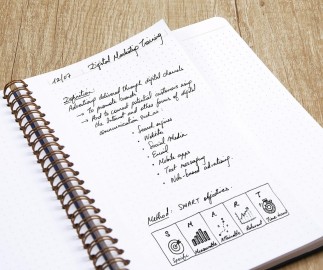 12/07 Digital Marketing Training
Definition:
Advertising delivered through digital channels
→ To promote brands
→ And to connect potential customers using
the Internet and other forms of digital
communication such as
• Search engines
• Website
• Social Media
• Email
• Mobile apps
• Text messaging
• Web-based advertising.
Method: SMART objectives.
S M A R T
Specific Measurable Attainable Relevant Time-based